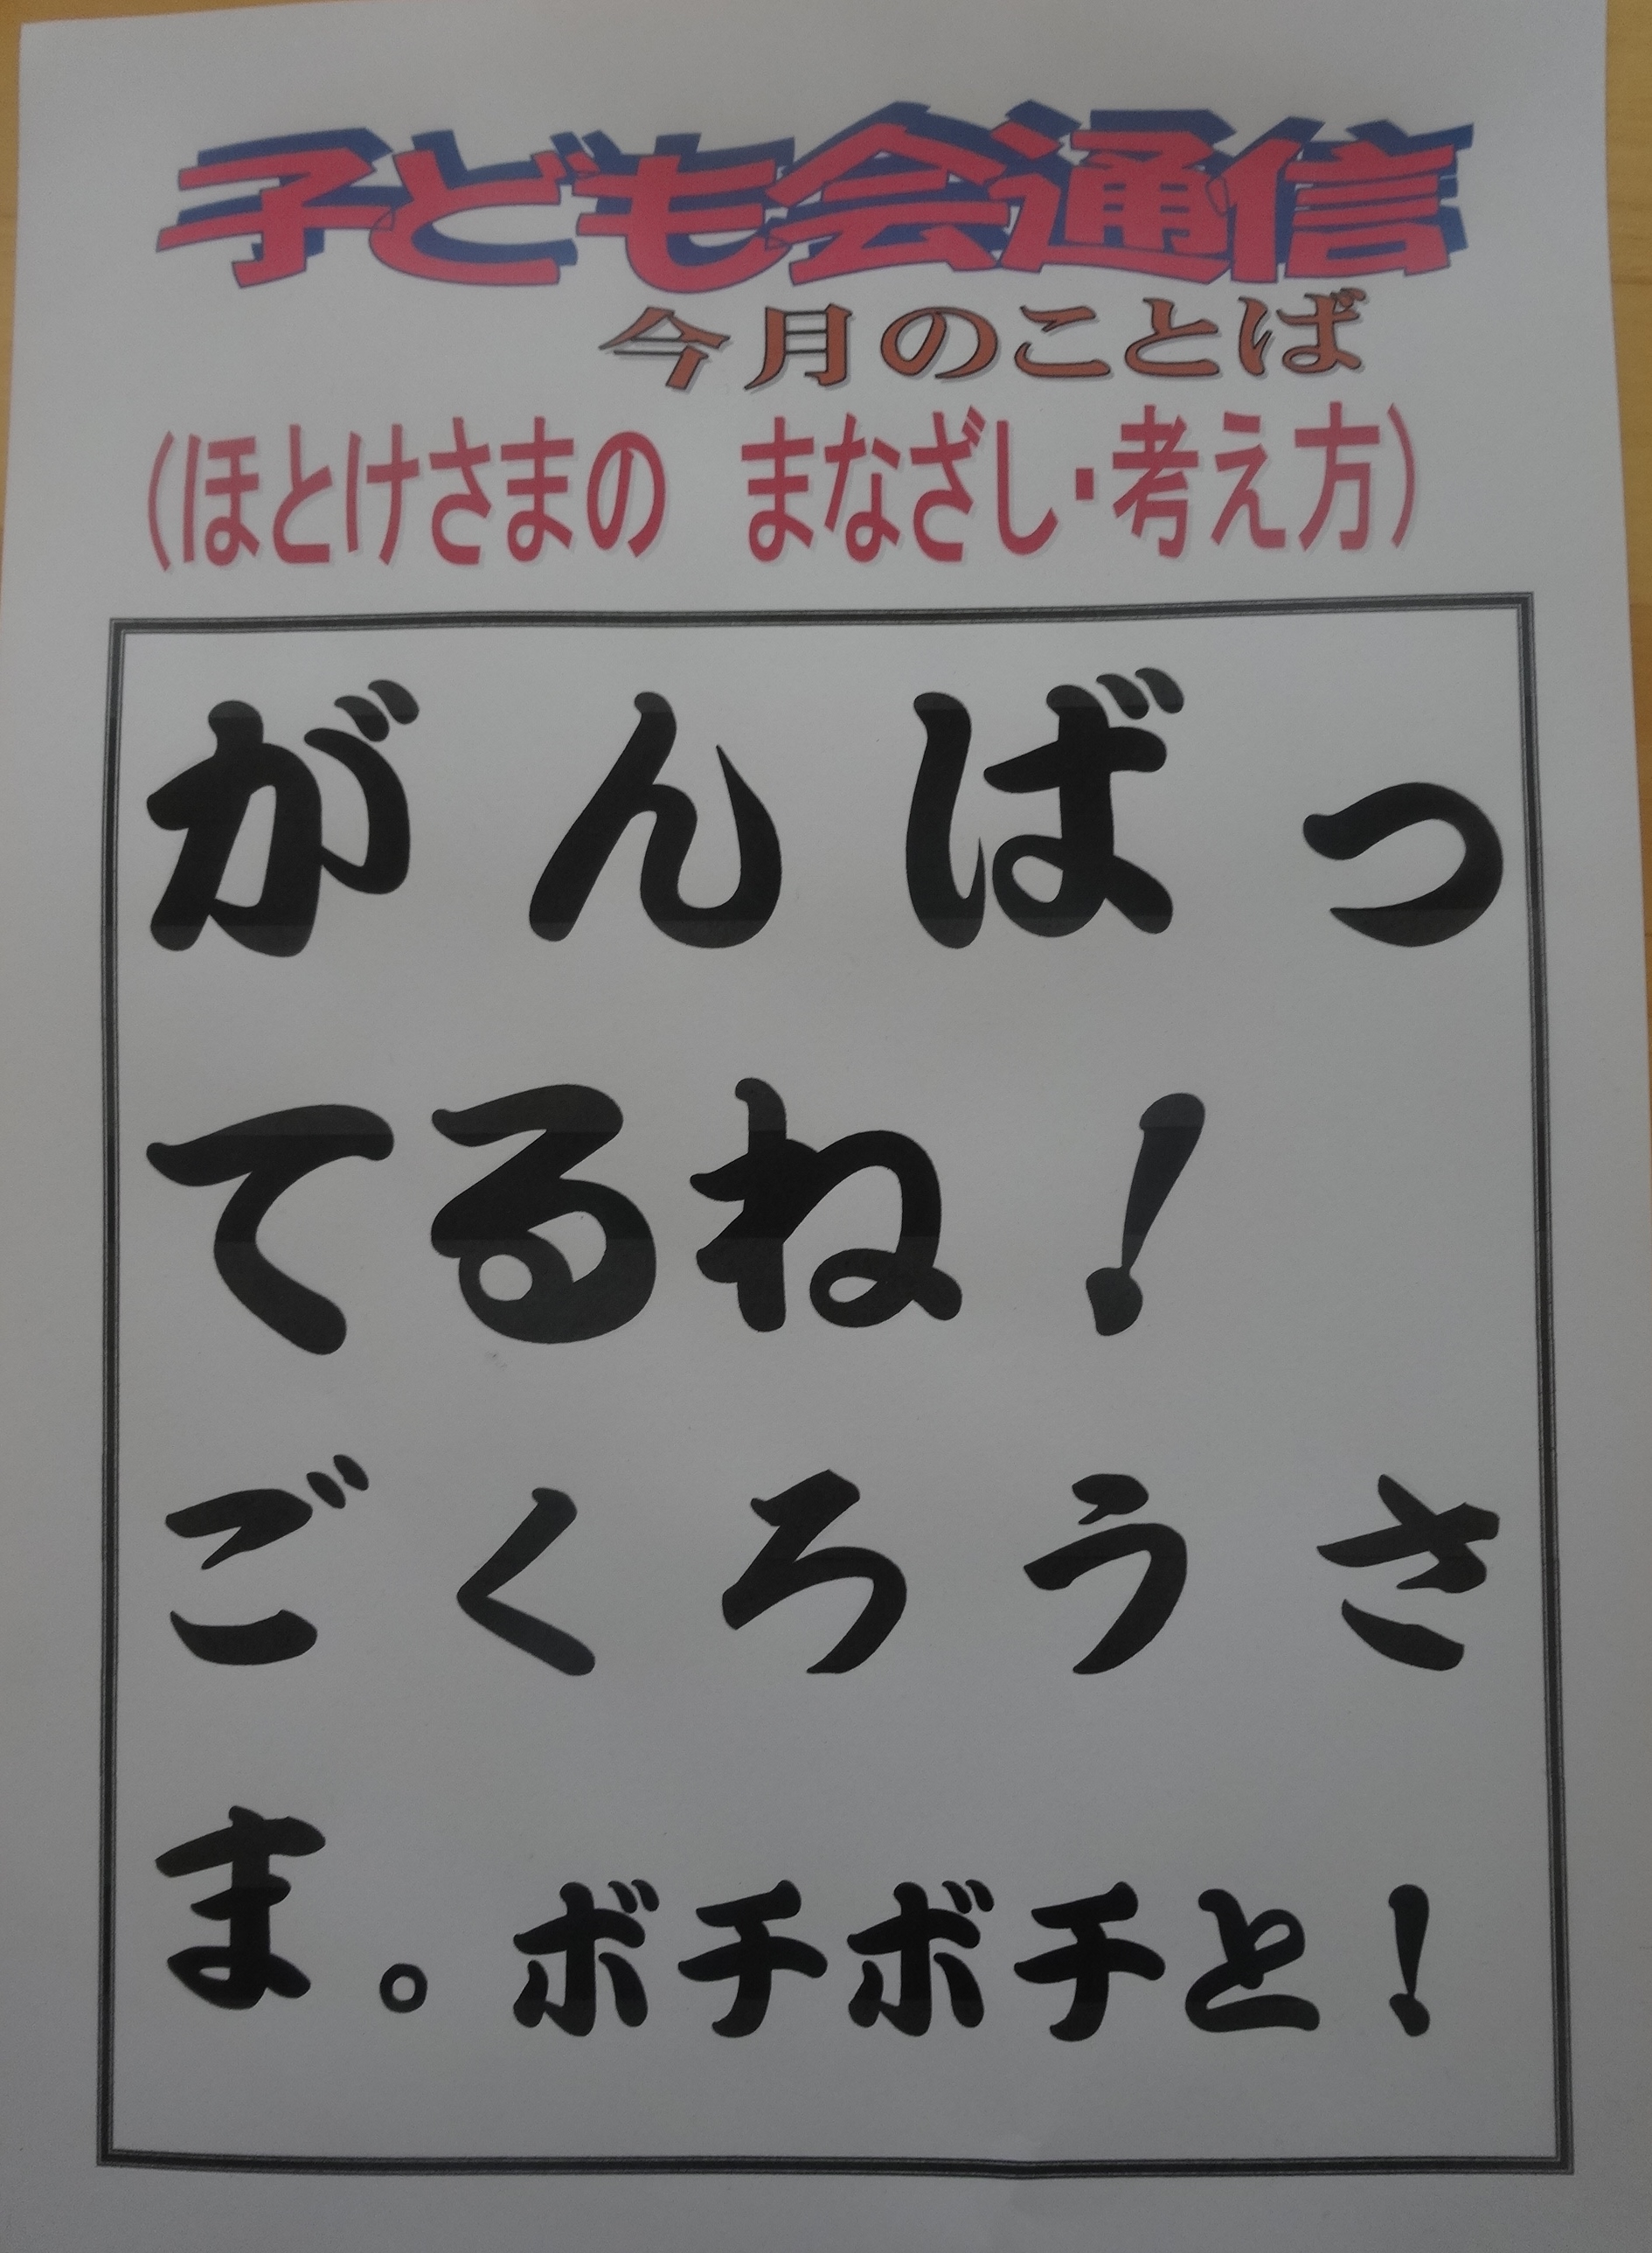 子ども会通信
今月のことば
(ほとけさまの　まなざし・考え方)
がんばっ
てるね！
ごくろうさ
ま。ボチボチと！